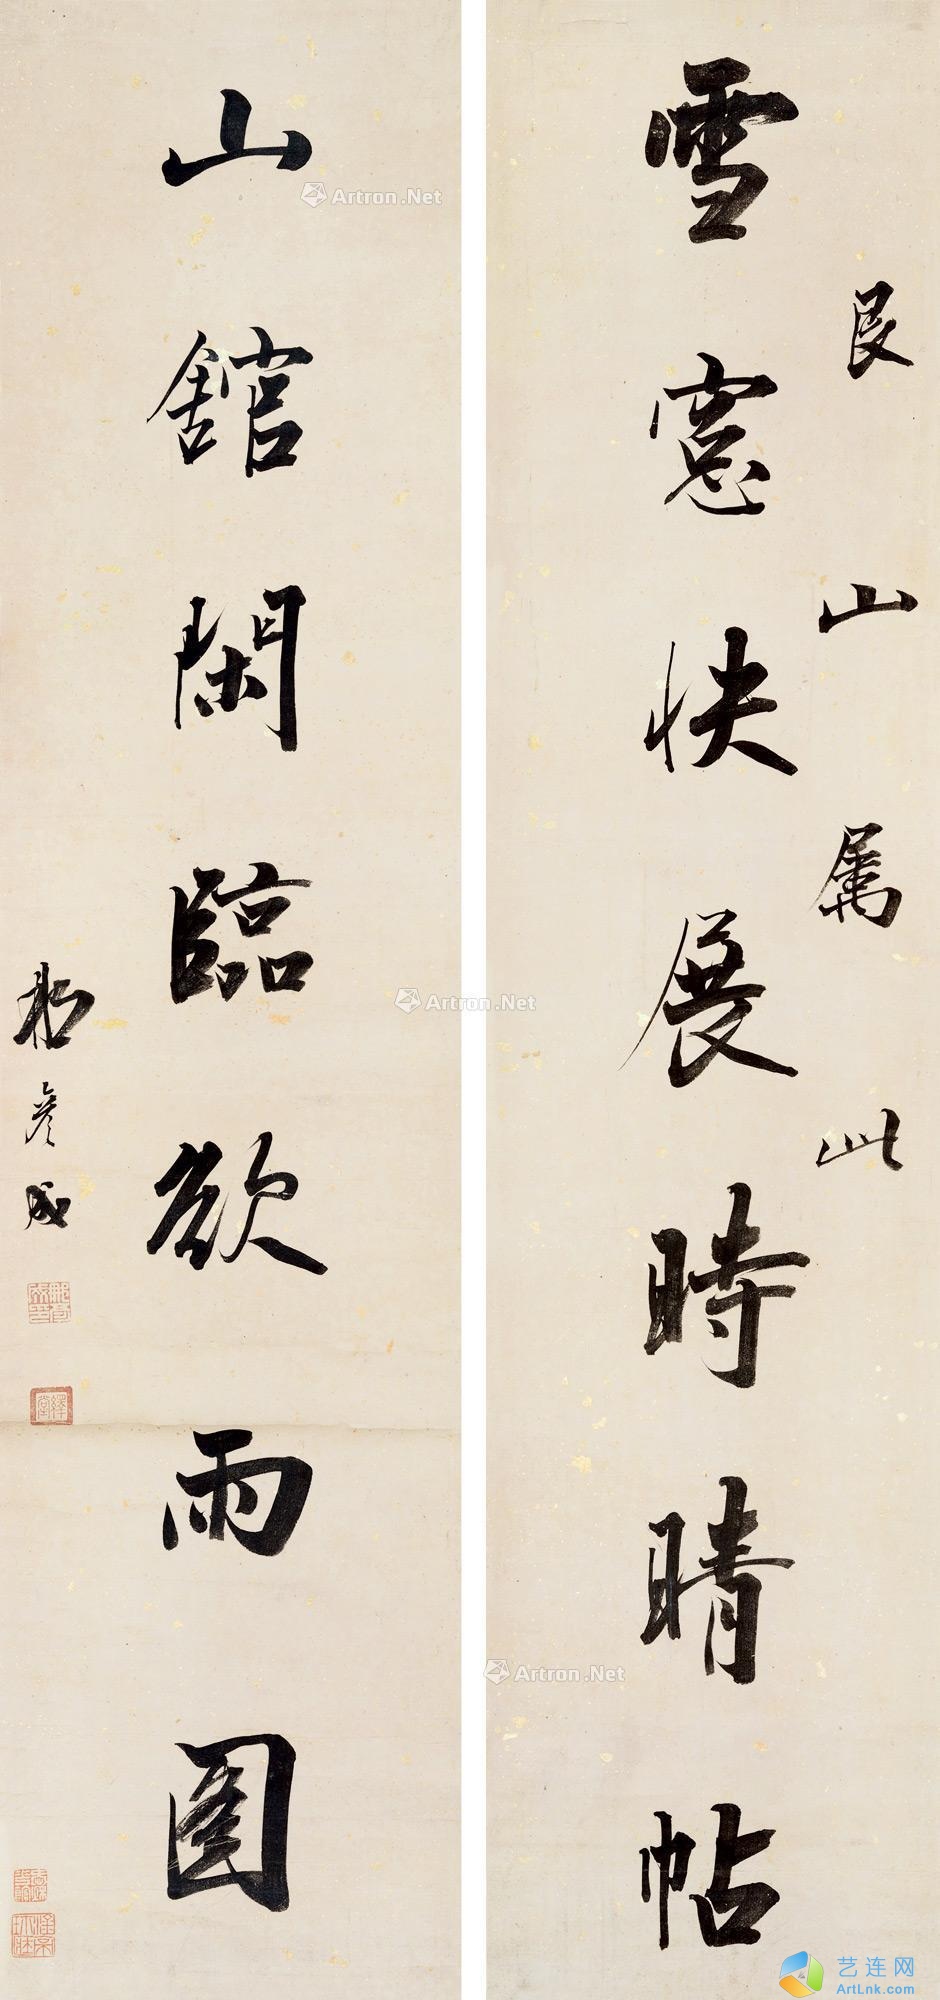 艮山属此
雪窓快展時晴帖
山館閑臨欲雨图
那彦成
繹堂
Artron.Net
Artron.Net
Artron.Net
艺连网
ArtLnk.com